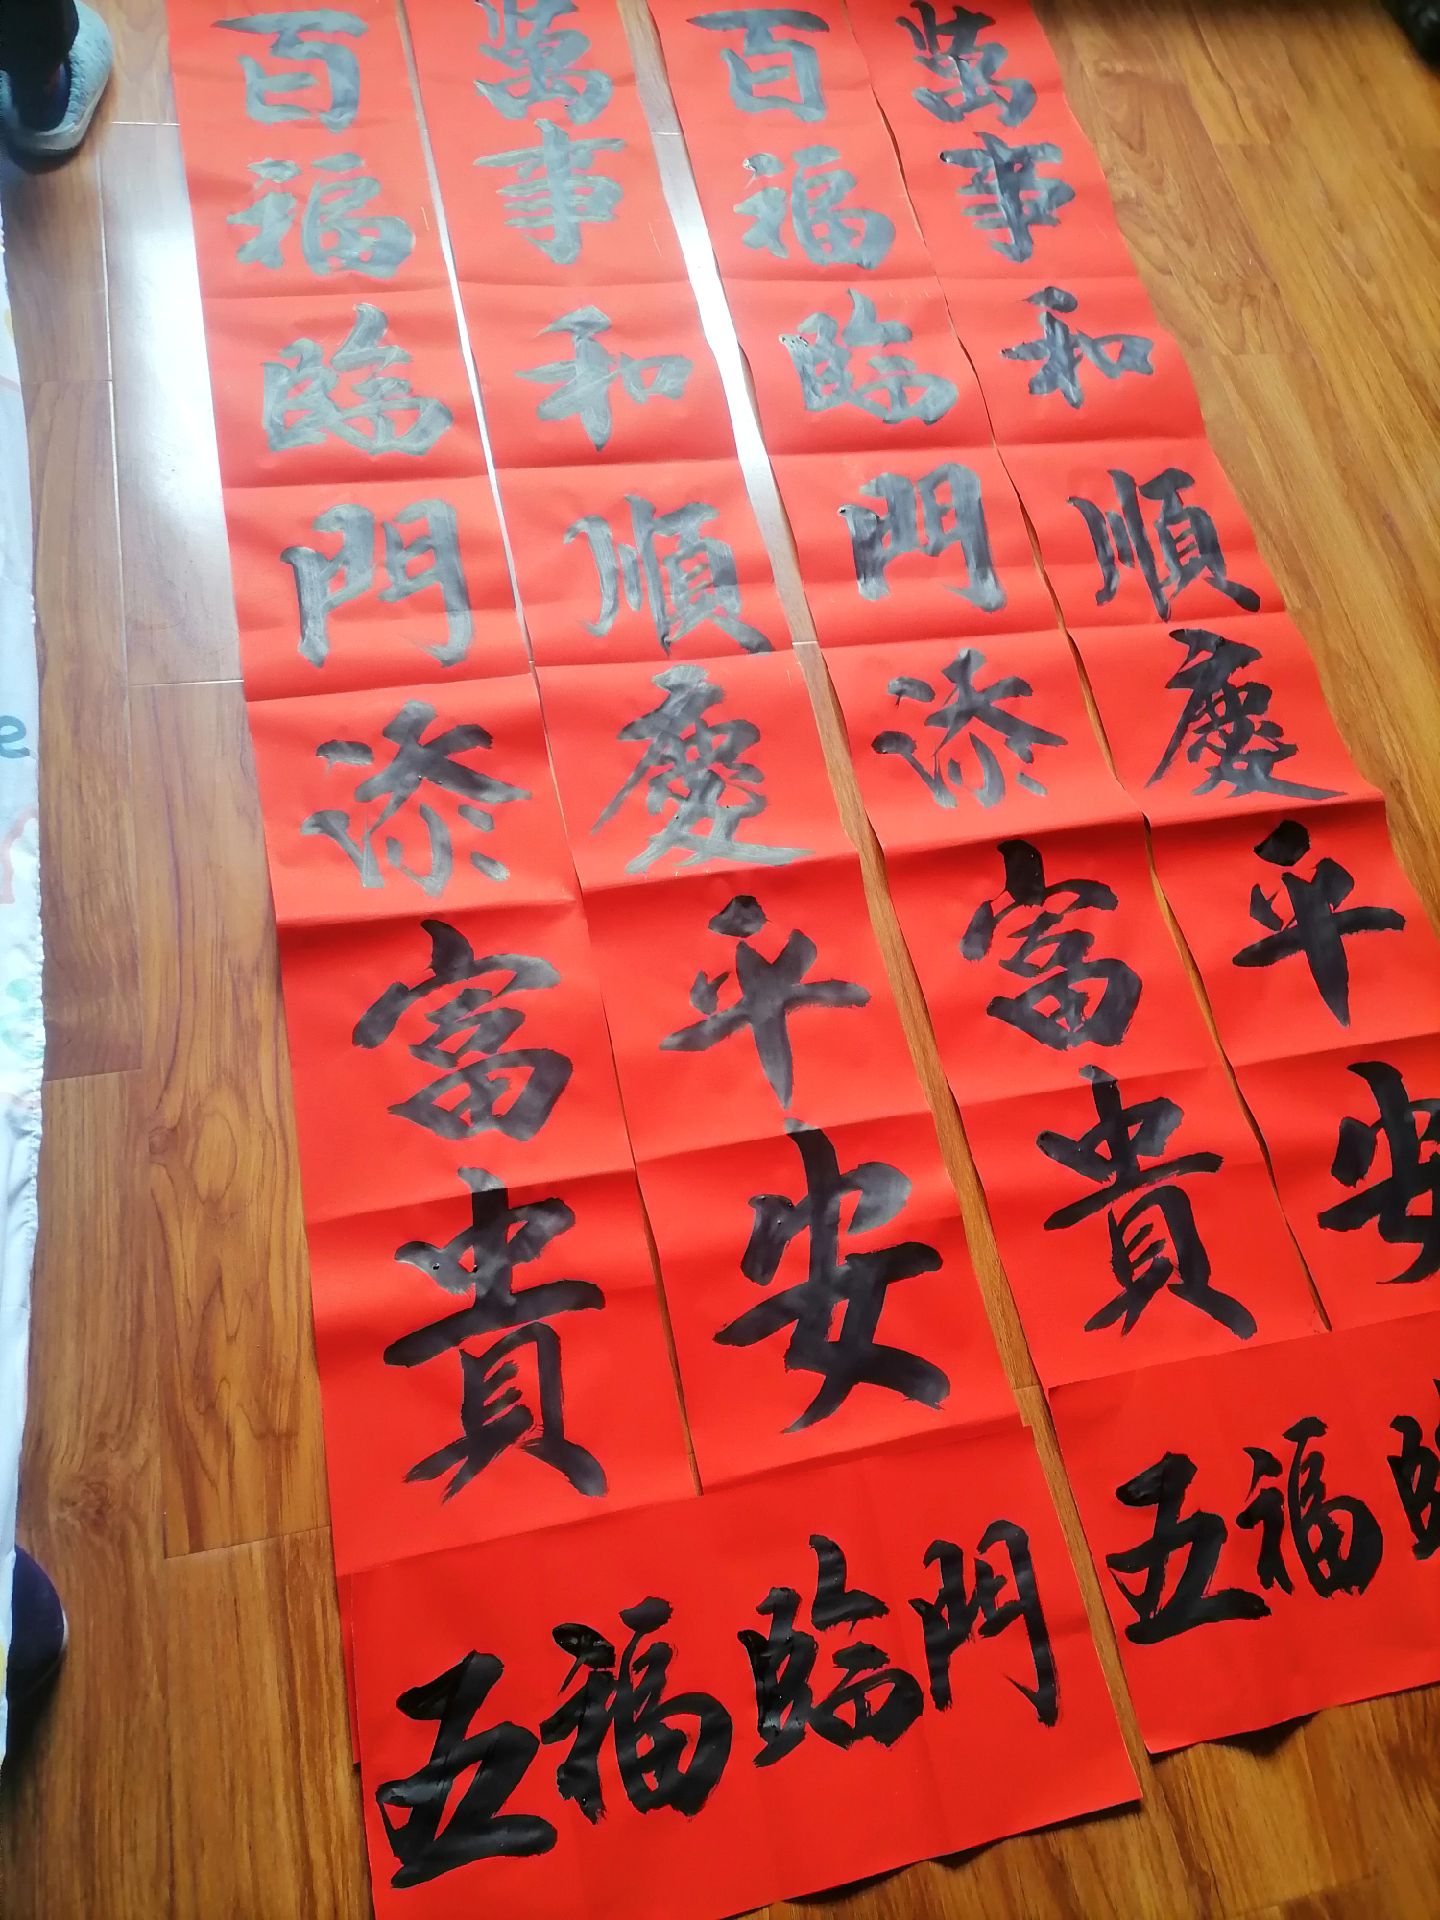 百福臨門添富貴
萬事和順慶平安
百福臨門添富貴
萬事和順慶平安
五福臨門
五福臨